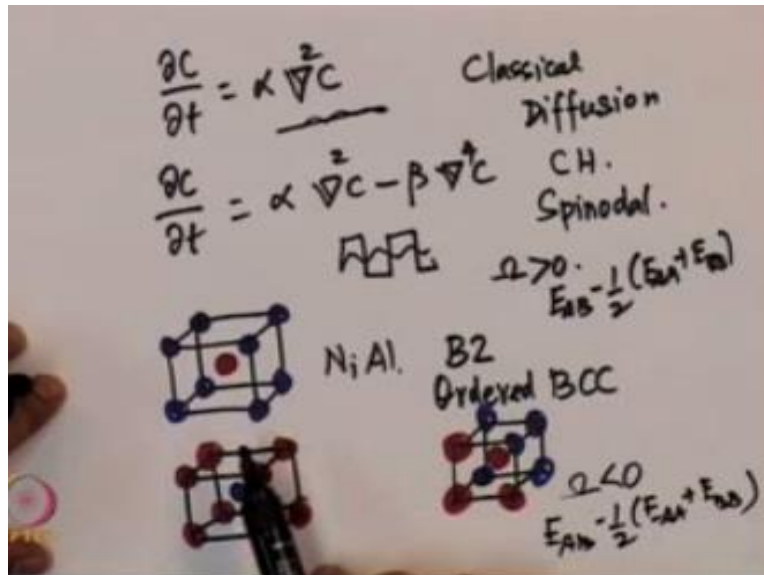 ∂C/∂t = α ∇²C
Classical
Diffusion
∂C/∂t = α ∇²C - β ∇⁴C
CH.
Spinodal.
Ω>0.
E_AB - 1/2 (E_AA + E_BB)
NiAl. B2
Ordered BCC
Ω<0
E_AB - 1/2 (E_AA + E_BB)